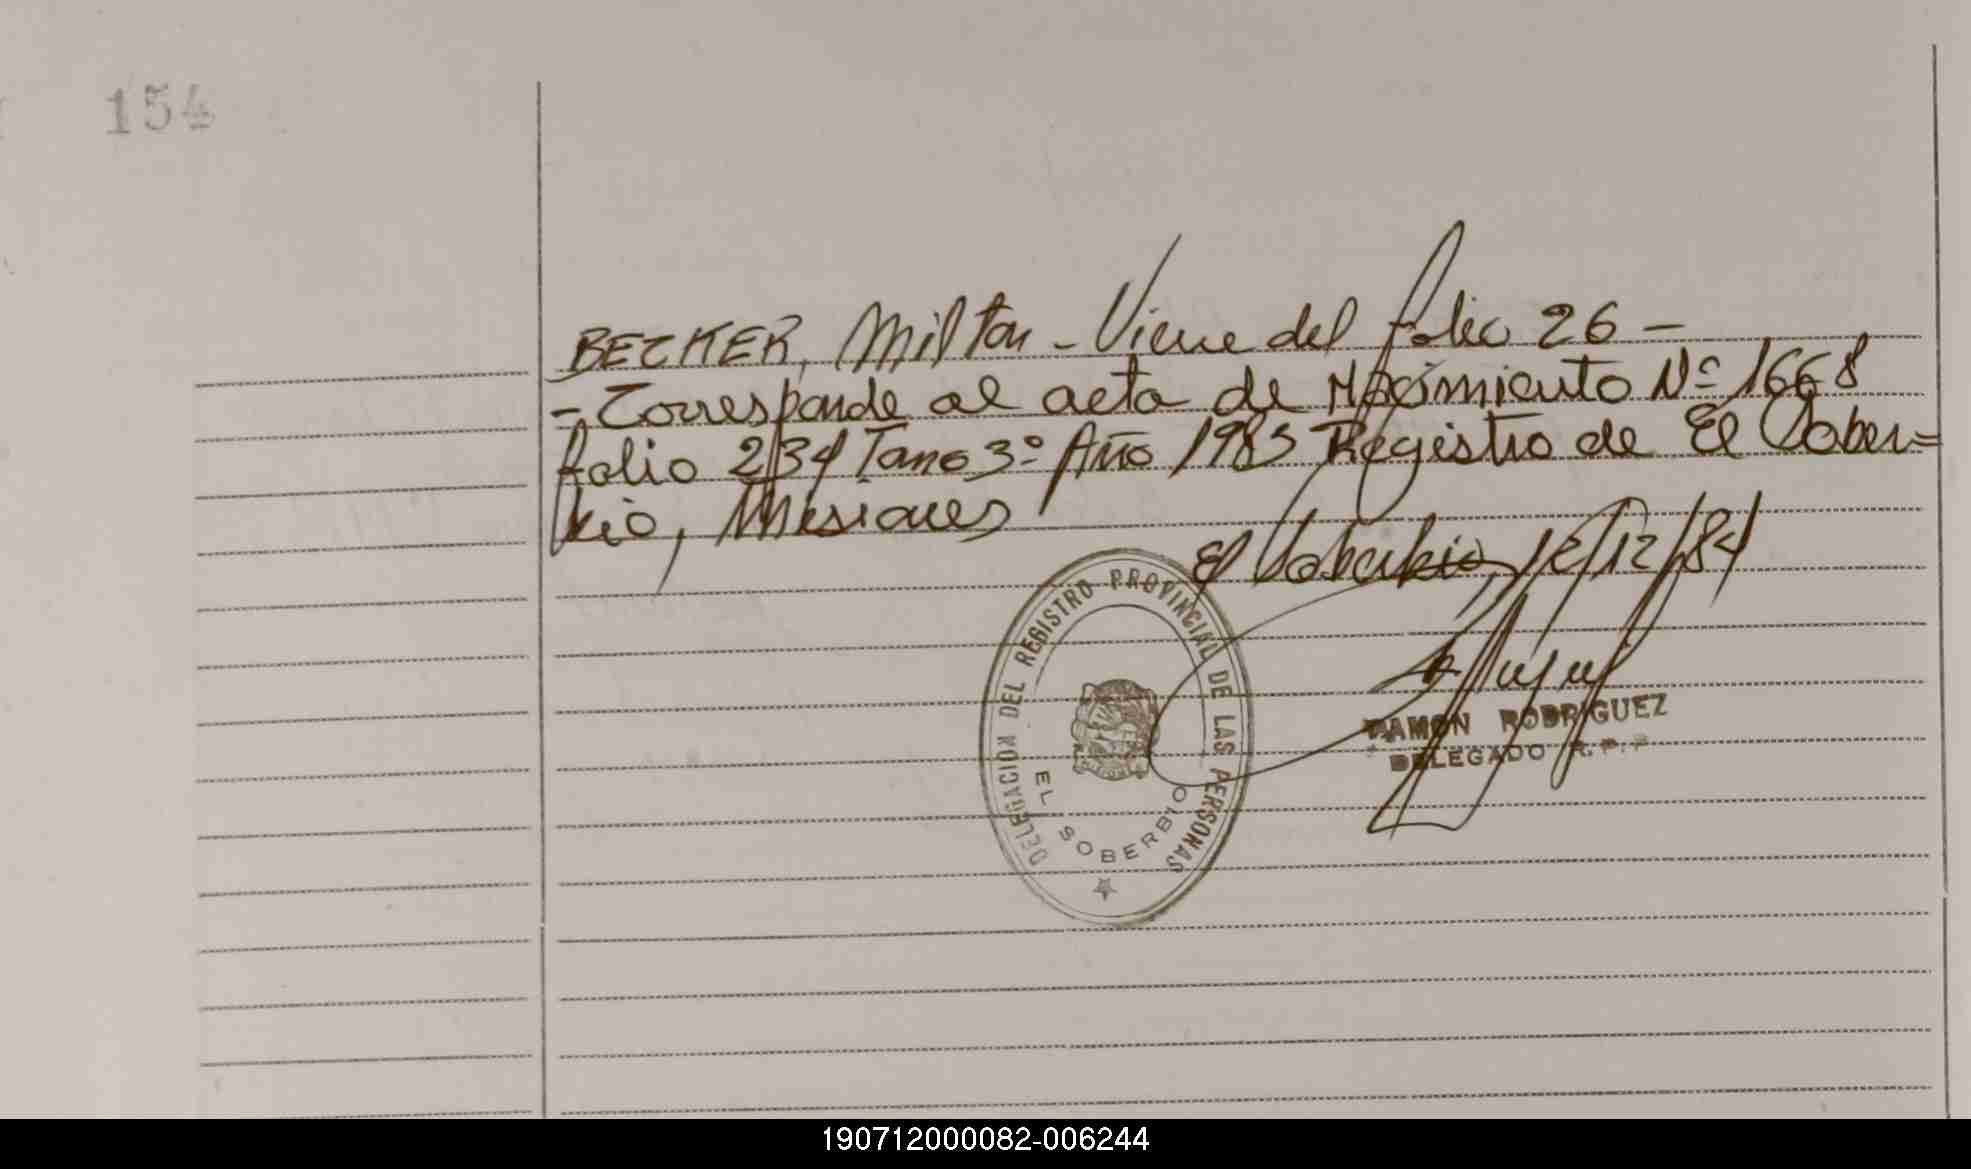 154
BECKER, Milton - Viene del folio 26 -
- Corresponde al acta de Nacimiento Nº 1668
folio 234 Tomo 3º Año 1983 Registro de El Sober=
bio, Misiones
El Soberbio, 12/12/84
DELEGACION DEL REGISTRO PROVINCIAL DE LAS PERSONAS
EL SOBERBIO
RAMON RODRIGUEZ
DELEGADO R.P.P
190712000082-006244